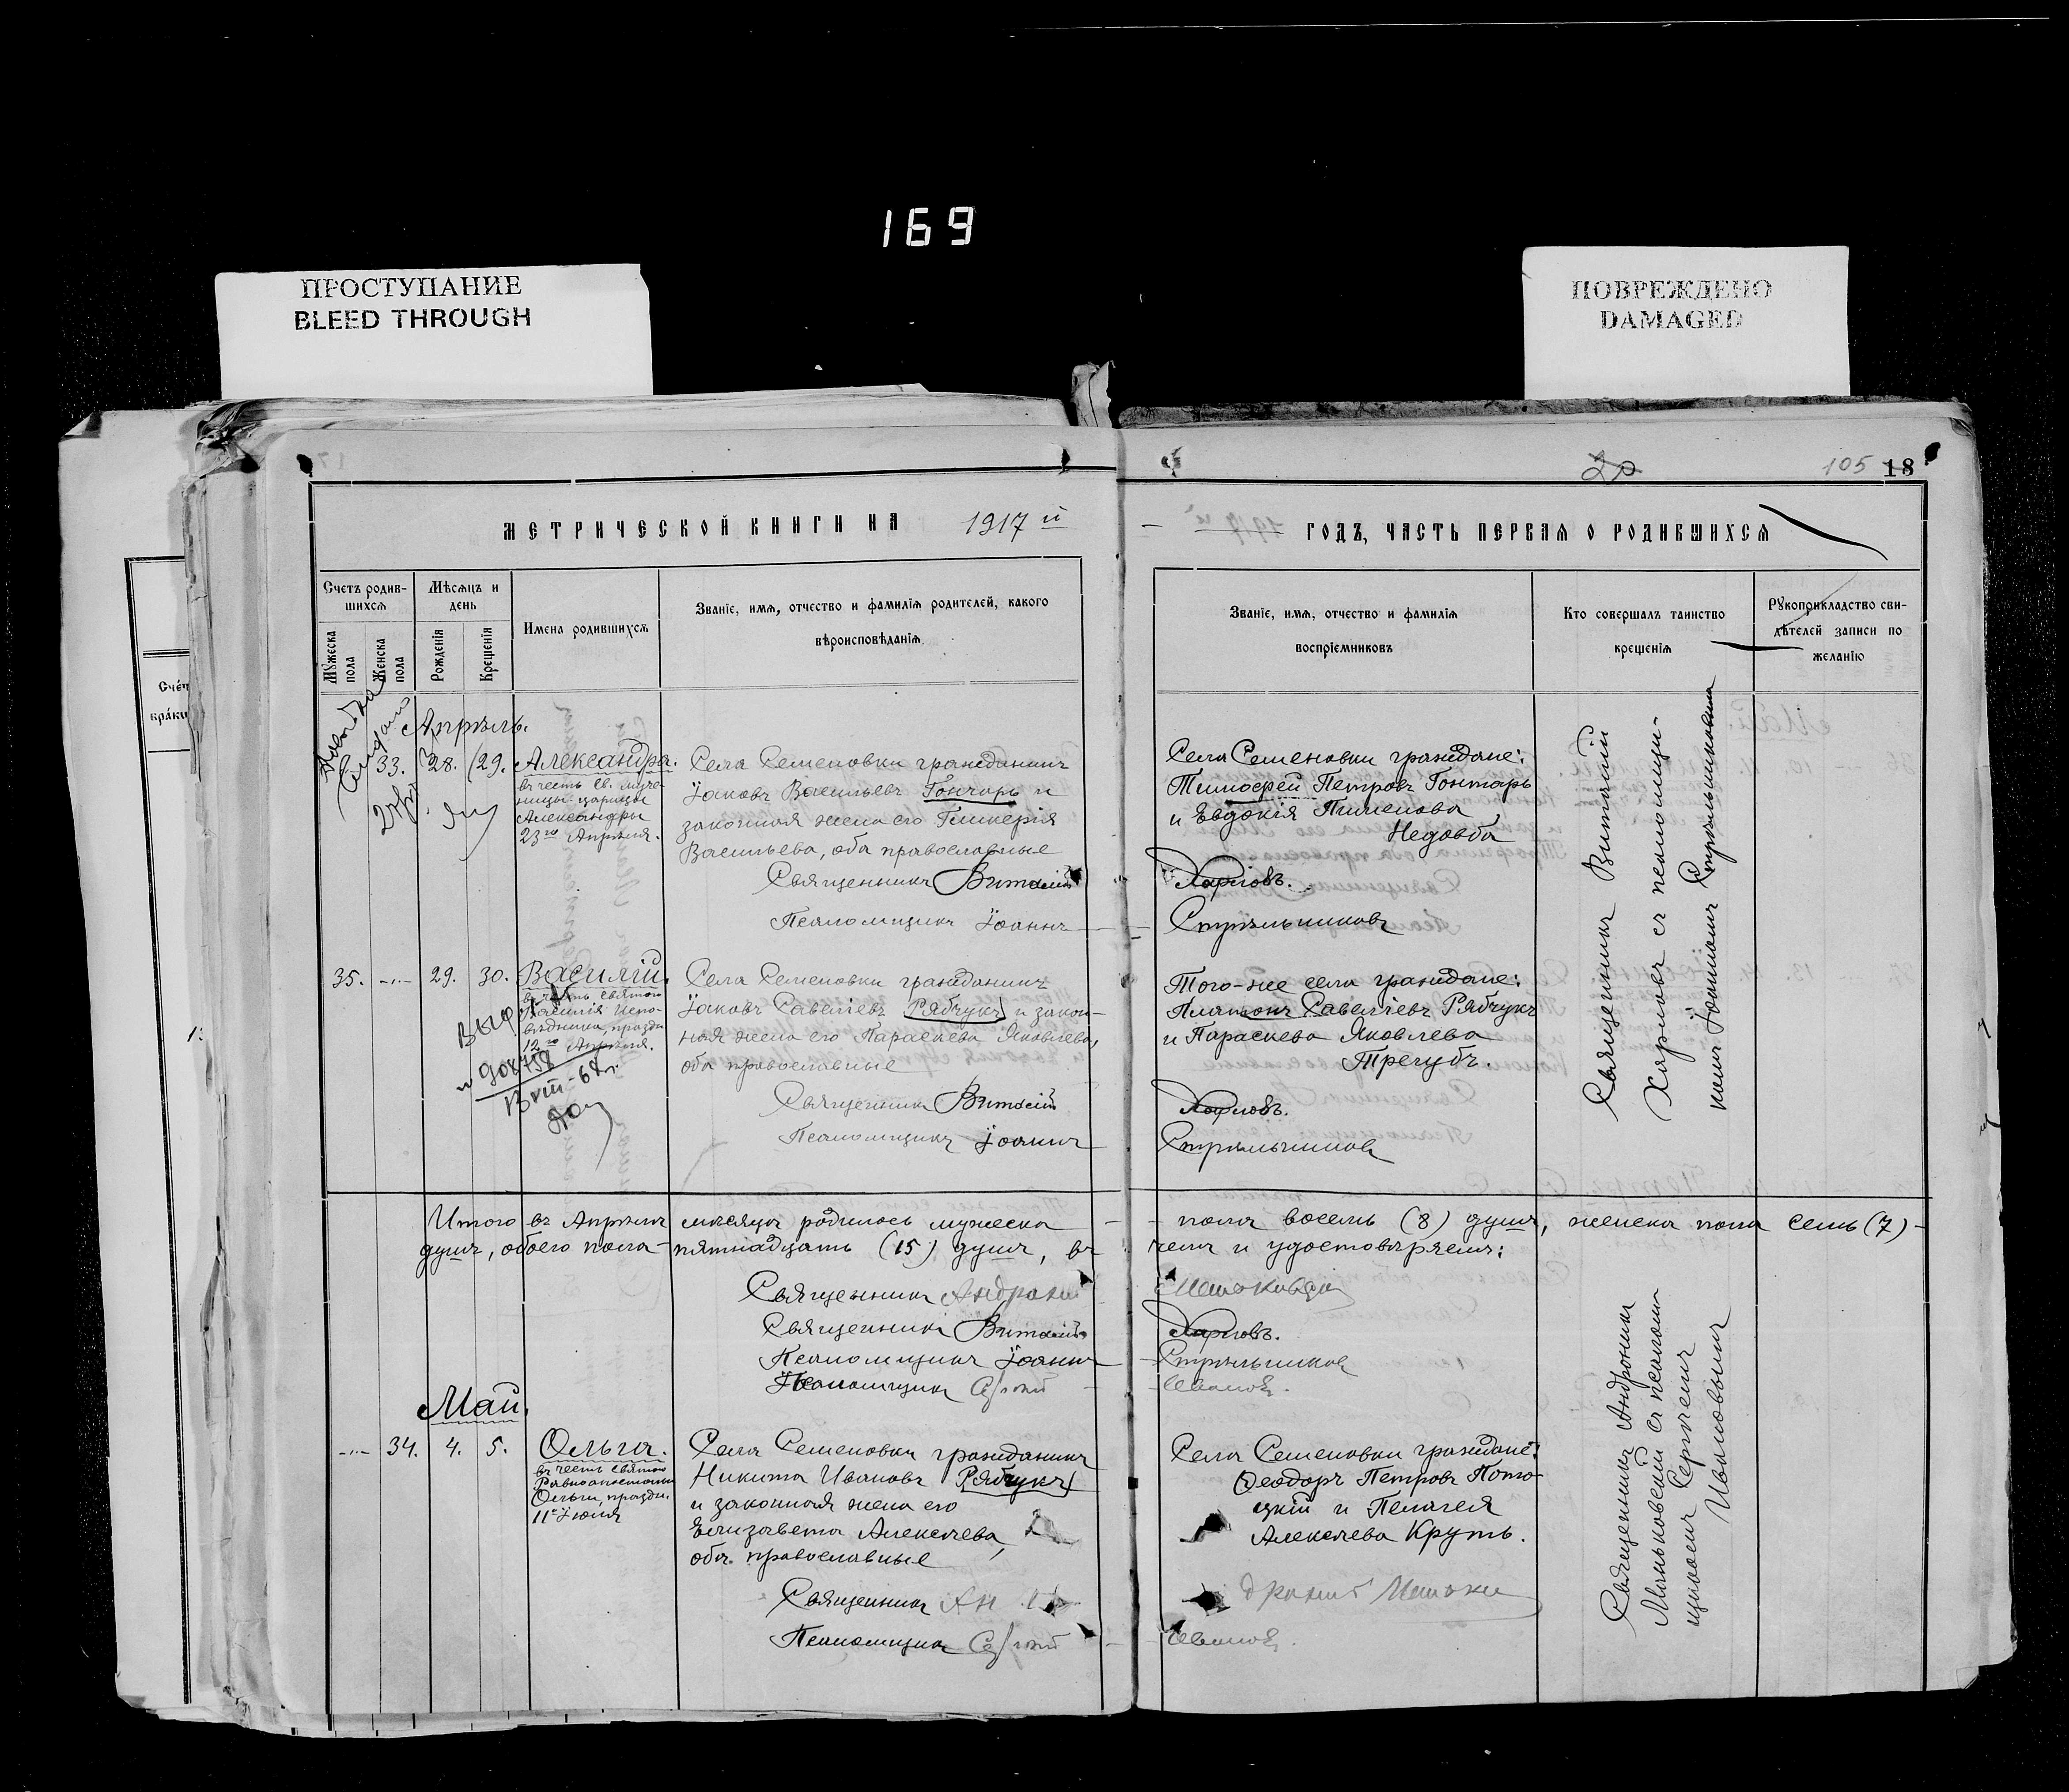 169
ПРОСТУПАНИЕ
BLEED THROUGH
ПОВРЕЖДЕНО
DAMAGED
20
105 18
МЕТРИЧЕСКОЙ КНИГИ НА 1917 й
ГОДЪ, ЧАСТЬ ПЕРВАЯ О РОДИВШИХСЯ
Счетъ родив-
шихся
Мужеска пола
Женска пола
Мѣсяцъ и
день
Рожденія
Крещенія
Имена родившихся
Званіе, имя, отчество и фамилія родителей, какого
вѣроисповѣданія
Званіе, имя, отчество и фамилія
воспріемниковъ
Кто совершалъ таинство
крещенія
Рукоприкладство сви-
дѣтелей записи по
желанію
Апрѣль.
33. 28. 29.
Александра.
въ честь св. муче-
ницы царицы
Александры
23го Апрѣля.
Села Семеновки гражданинъ
Іаковъ Васильевъ Гончарь и
законная жена его Гликерія
Васильева, оба православные
Священникъ Виталій
Псаломщикъ Іоаннъ
Села Семеновки граждане:
Тимофей Петровъ Гонтарь
и Евдокія Пименова
Недовба
Харловъ.
Стрѣльниковъ
Священникъ Виталій
Харловъ съ псаломщи-
комъ Іоанномъ Стрѣльниковымъ
35. -"- 29. 30.
Василій.
въ честь святого
Василія Испо-
вѣдника, праздн.
12го Апрѣля.
908758
VIII-68г.
Села Семеновки гражданинъ
Іаковъ Савеліевъ Рябчукъ и закон-
ная жена его Параскева Яковлева,
оба православные
Священникъ Виталій
Псаломщикъ Іоаннъ
Того-же села граждане:
Платонъ Савеліевъ Рябчукъ
и Параскева Яковлева
Трегубъ.
Харловъ.
Стрѣльниковъ
Итого въ Апрѣлѣ мѣсяцѣ родилось мужеска
пола восемь (8) душъ, женска пола семь (7)
душъ, обоего пола пятнадцать (15) душъ, въ
чемъ и удостовѣряемъ:
Священникъ Андроникъ
Священникъ Виталій
Псаломщикъ Іоаннъ
Псаломщикъ Сергій
Харловъ.
Стрѣльниковъ
Ивановъ.
Май.
-"- 34. 4. 5.
Ольга.
въ честь святой
Равноапостольн.
Ольги, праздн.
11го Іюля
Села Семеновки гражданинъ
Никита Ивановъ Рябчукъ
и законная жена его
Елизавета Алексѣева,
оба православные
Священникъ
Псаломщикъ Сергій
Села Семеновки граждане:
Ѳеодоръ Петровъ Пото-
цкій и Пелагея
Алексѣева Круть.
Ивановъ.
Священникъ Андроникъ
съ псалом-
щикомъ Сергіемъ
Ивановымъ